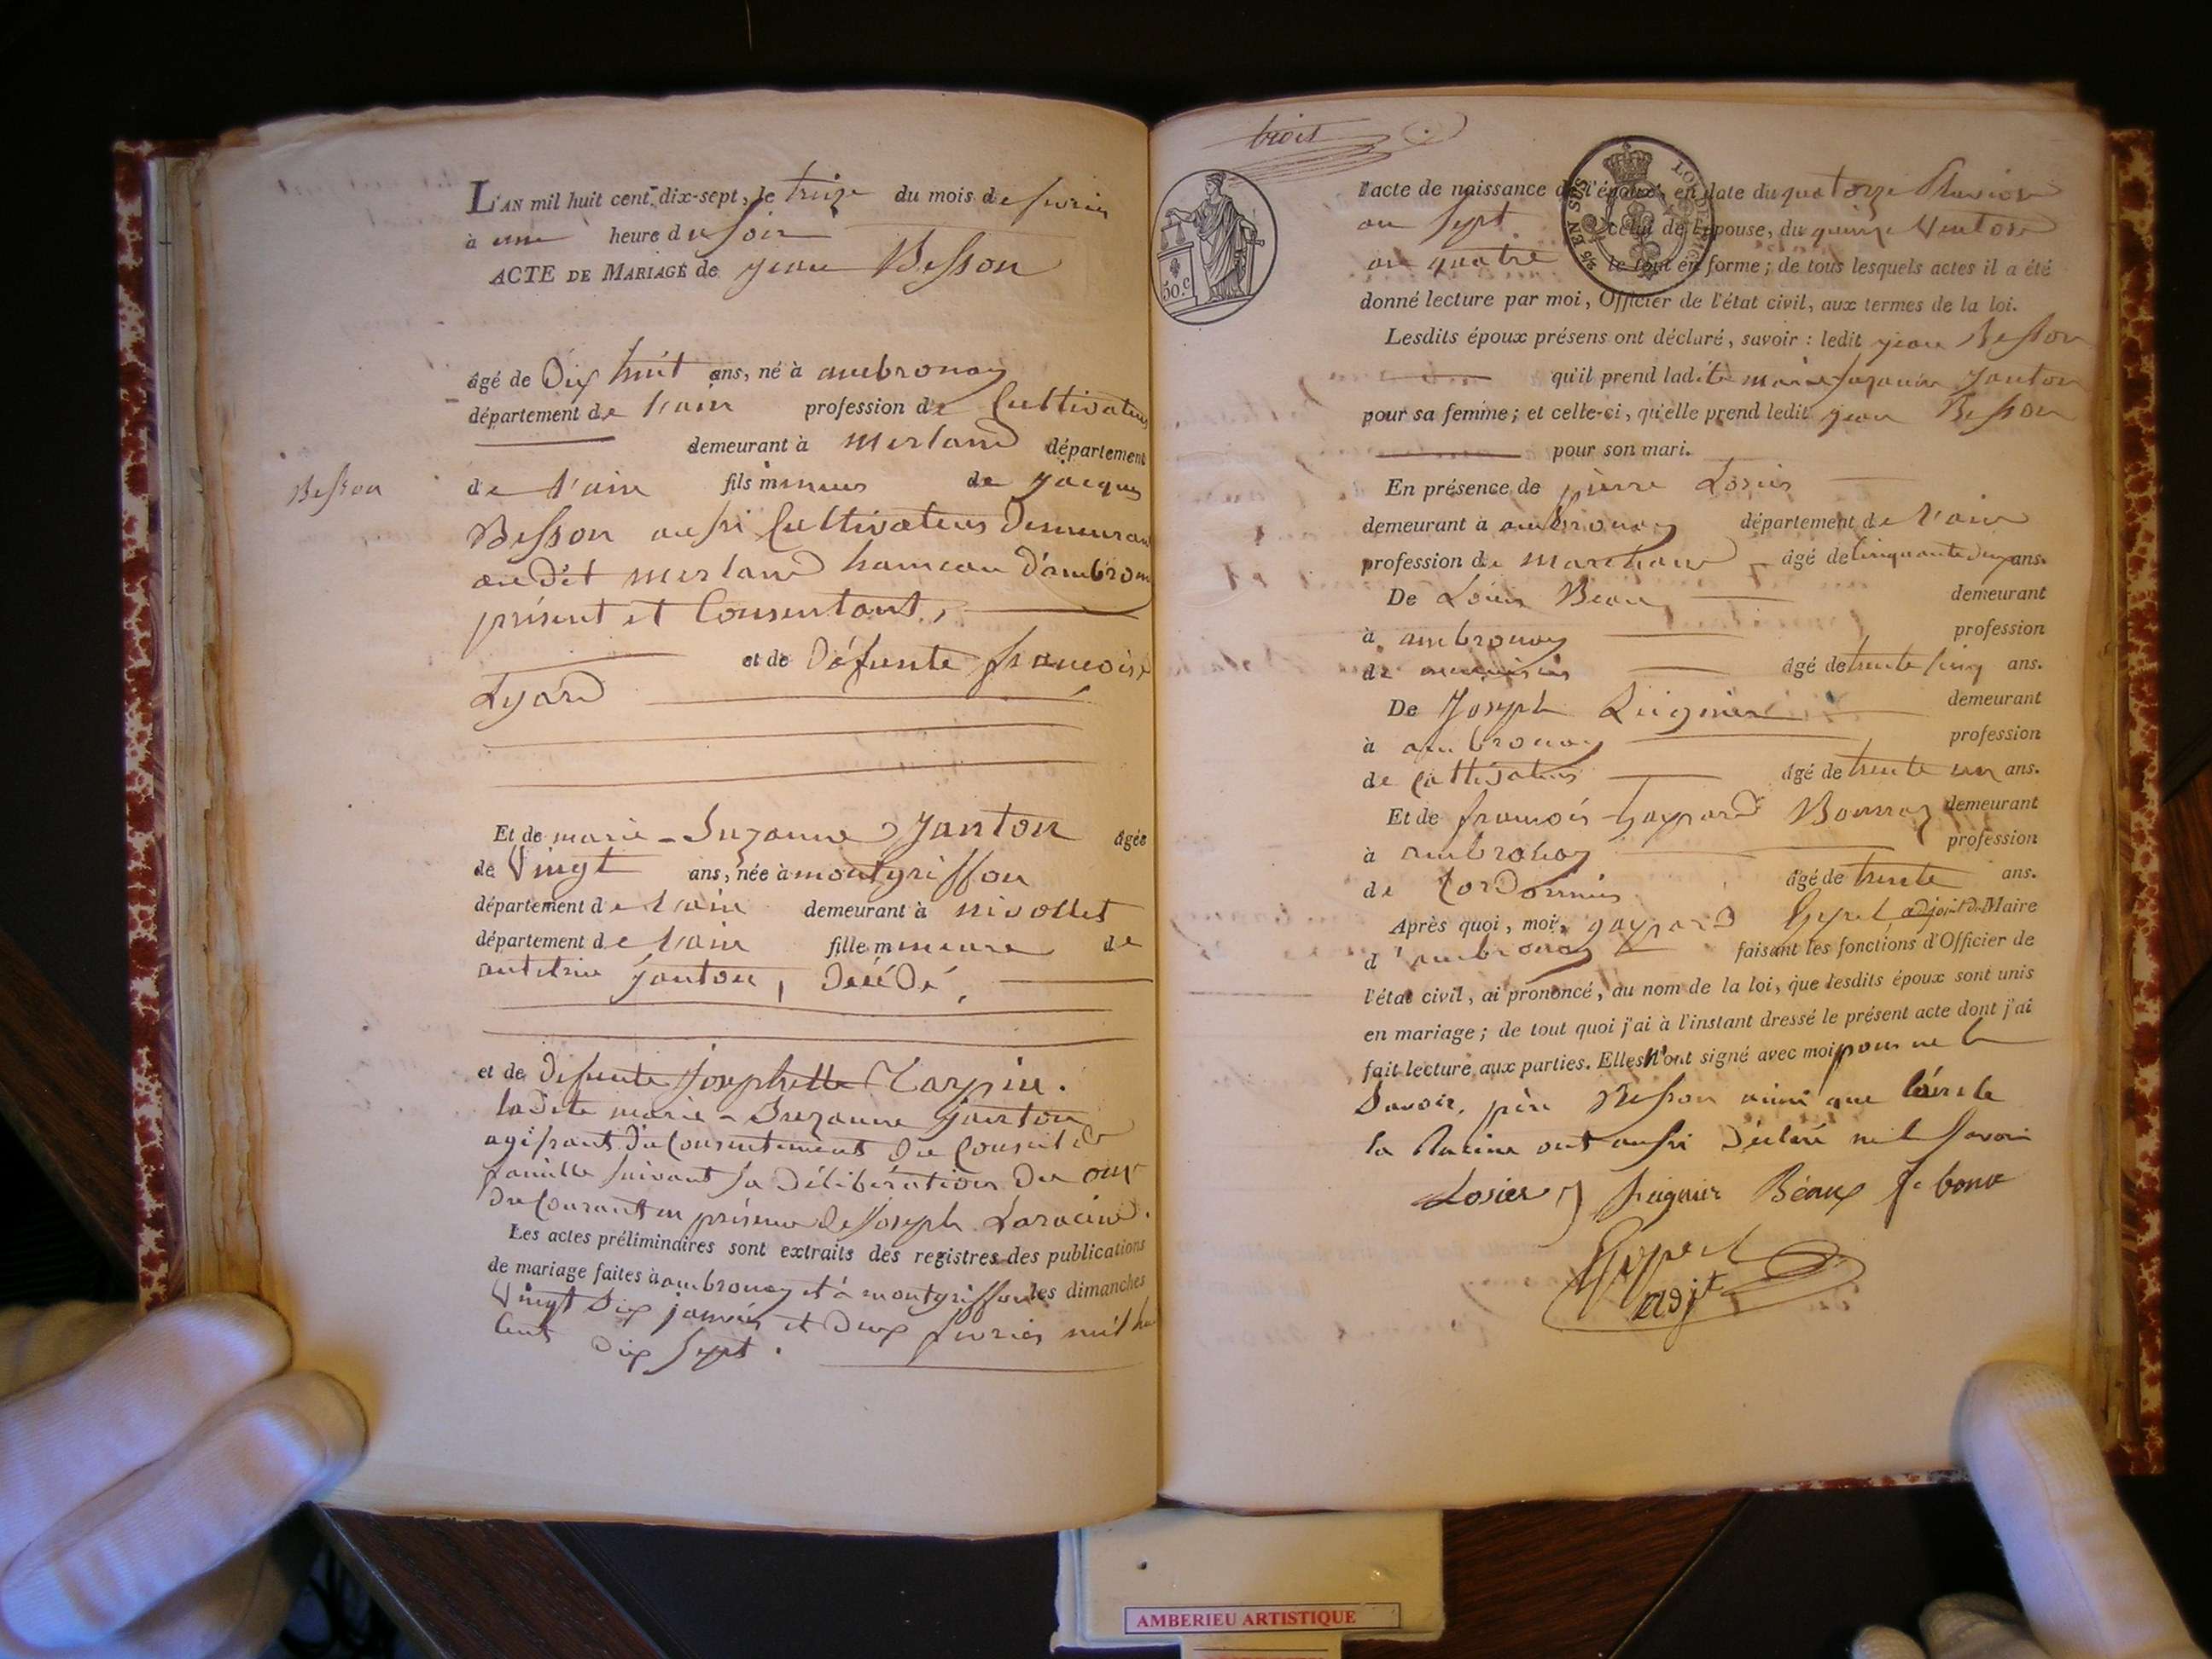 L'AN mil huit cent dix-sept, le treize du mois de fevrier
à une heure du soir
ACTE DE MARIAGE de jean Besson
âgé de Dix huit ans, né à ambronay
département de l'ain profession de Cultivateur
demeurant à merland département
Besson
de l'ain fils mineur de jacques
Besson aussi Cultivateur Demeurant
au dit merland hameau d'ambron
présent et Consentant,
et de Défunte francoise
Lyard
Et de marie - Suzanne Janton âgée
de Vingt ans, née à montgriffon
département de l'ain demeurant à nivollet
département de l'ain fille mineure de
anthelme Janton, Décédé,
et de Defunte Josephette Tarpin.
ladite marie - Suzanne Janton
agissant du Consentement du Conseil de
famille suivant sa Délibération du onze
du Courant en présence de Joseph Laracine.
Les actes préliminaires sont extraits des registres des publications
de mariage faites à ambronay et à montgriffon les dimanches
Vingt Six janvier et deux fevrier mil hu
Cent dix Sept.
trois
50.c
EN SUS
l'acte de naissance de l'époux, en date du quatorze Pluviose
an sept celui de l'épouse, du quinze Ventose
an quatre le tout en forme ; de tous lesquels actes il a été
donné lecture par moi, Officier de l'état civil, aux termes de la loi.
Lesdits époux présens ont déclaré, savoir : ledit jean Besson
qu'il prend ladite marie suzanne Janton
pour sa femme ; et celle-ci, qu'elle prend ledit jean Besson
pour son mari.
En présence de pierre Losier
demeurant à ambronay département de l'ain
profession de marchand âgé de Cinquante deux ans.
De Louis Beau demeurant
à ambronay profession
de menuisier âgé de trente Cinq ans.
De Joseph Reignier demeurant
à ambronay profession
de Cultivateur âgé de trente un ans.
Et de françois Gaspard Bonnaz demeurant
à ambronay profession
de Cordonnier âgé de trente ans.
Après quoi, moi, gaspard adjoint du Maire
d'ambronay faisant les fonctions d'Officier de
l'état civil, ai prononcé, au nom de la loi, que lesdits époux sont unis
en mariage ; de tout quoi j'ai à l'instant dressé le présent acte dont j'ai
fait lecture aux parties. Elles n'ont signé avec moi pour ne le
Savoir, père Besson ainsi que
la Racine ont aussi Déclaré ne le Savoir
Losier J Reignier Béaux
adjt
AMBERIEU ARTISTIQUE